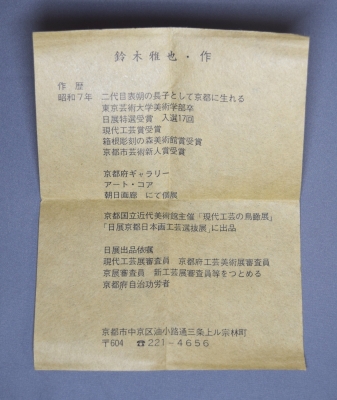 鈴木雅也・作
作歴
昭和7年 二代目表朔の長子として京都に生れる
東京芸術大学美術学部卒
日展特選受賞 入選17回
現代工芸賞受賞
箱根彫刻の森美術館賞受賞
京都市芸術新人賞受賞
京都府ギャラリー
アート・コア
朝日画廊 にて個展
京都国立近代美術館主催「現代工芸の鳥瞰展」
「日展京都日本画工芸選抜展」に出品
日展出品依嘱
現代工芸展審査員 京都府工芸美術展審査員
京展審査員 新工芸展審査員等をつとめる
京都府自治功労者
京都市中京区油小路通三条上ル宗林町
〒604 ☎221-4656